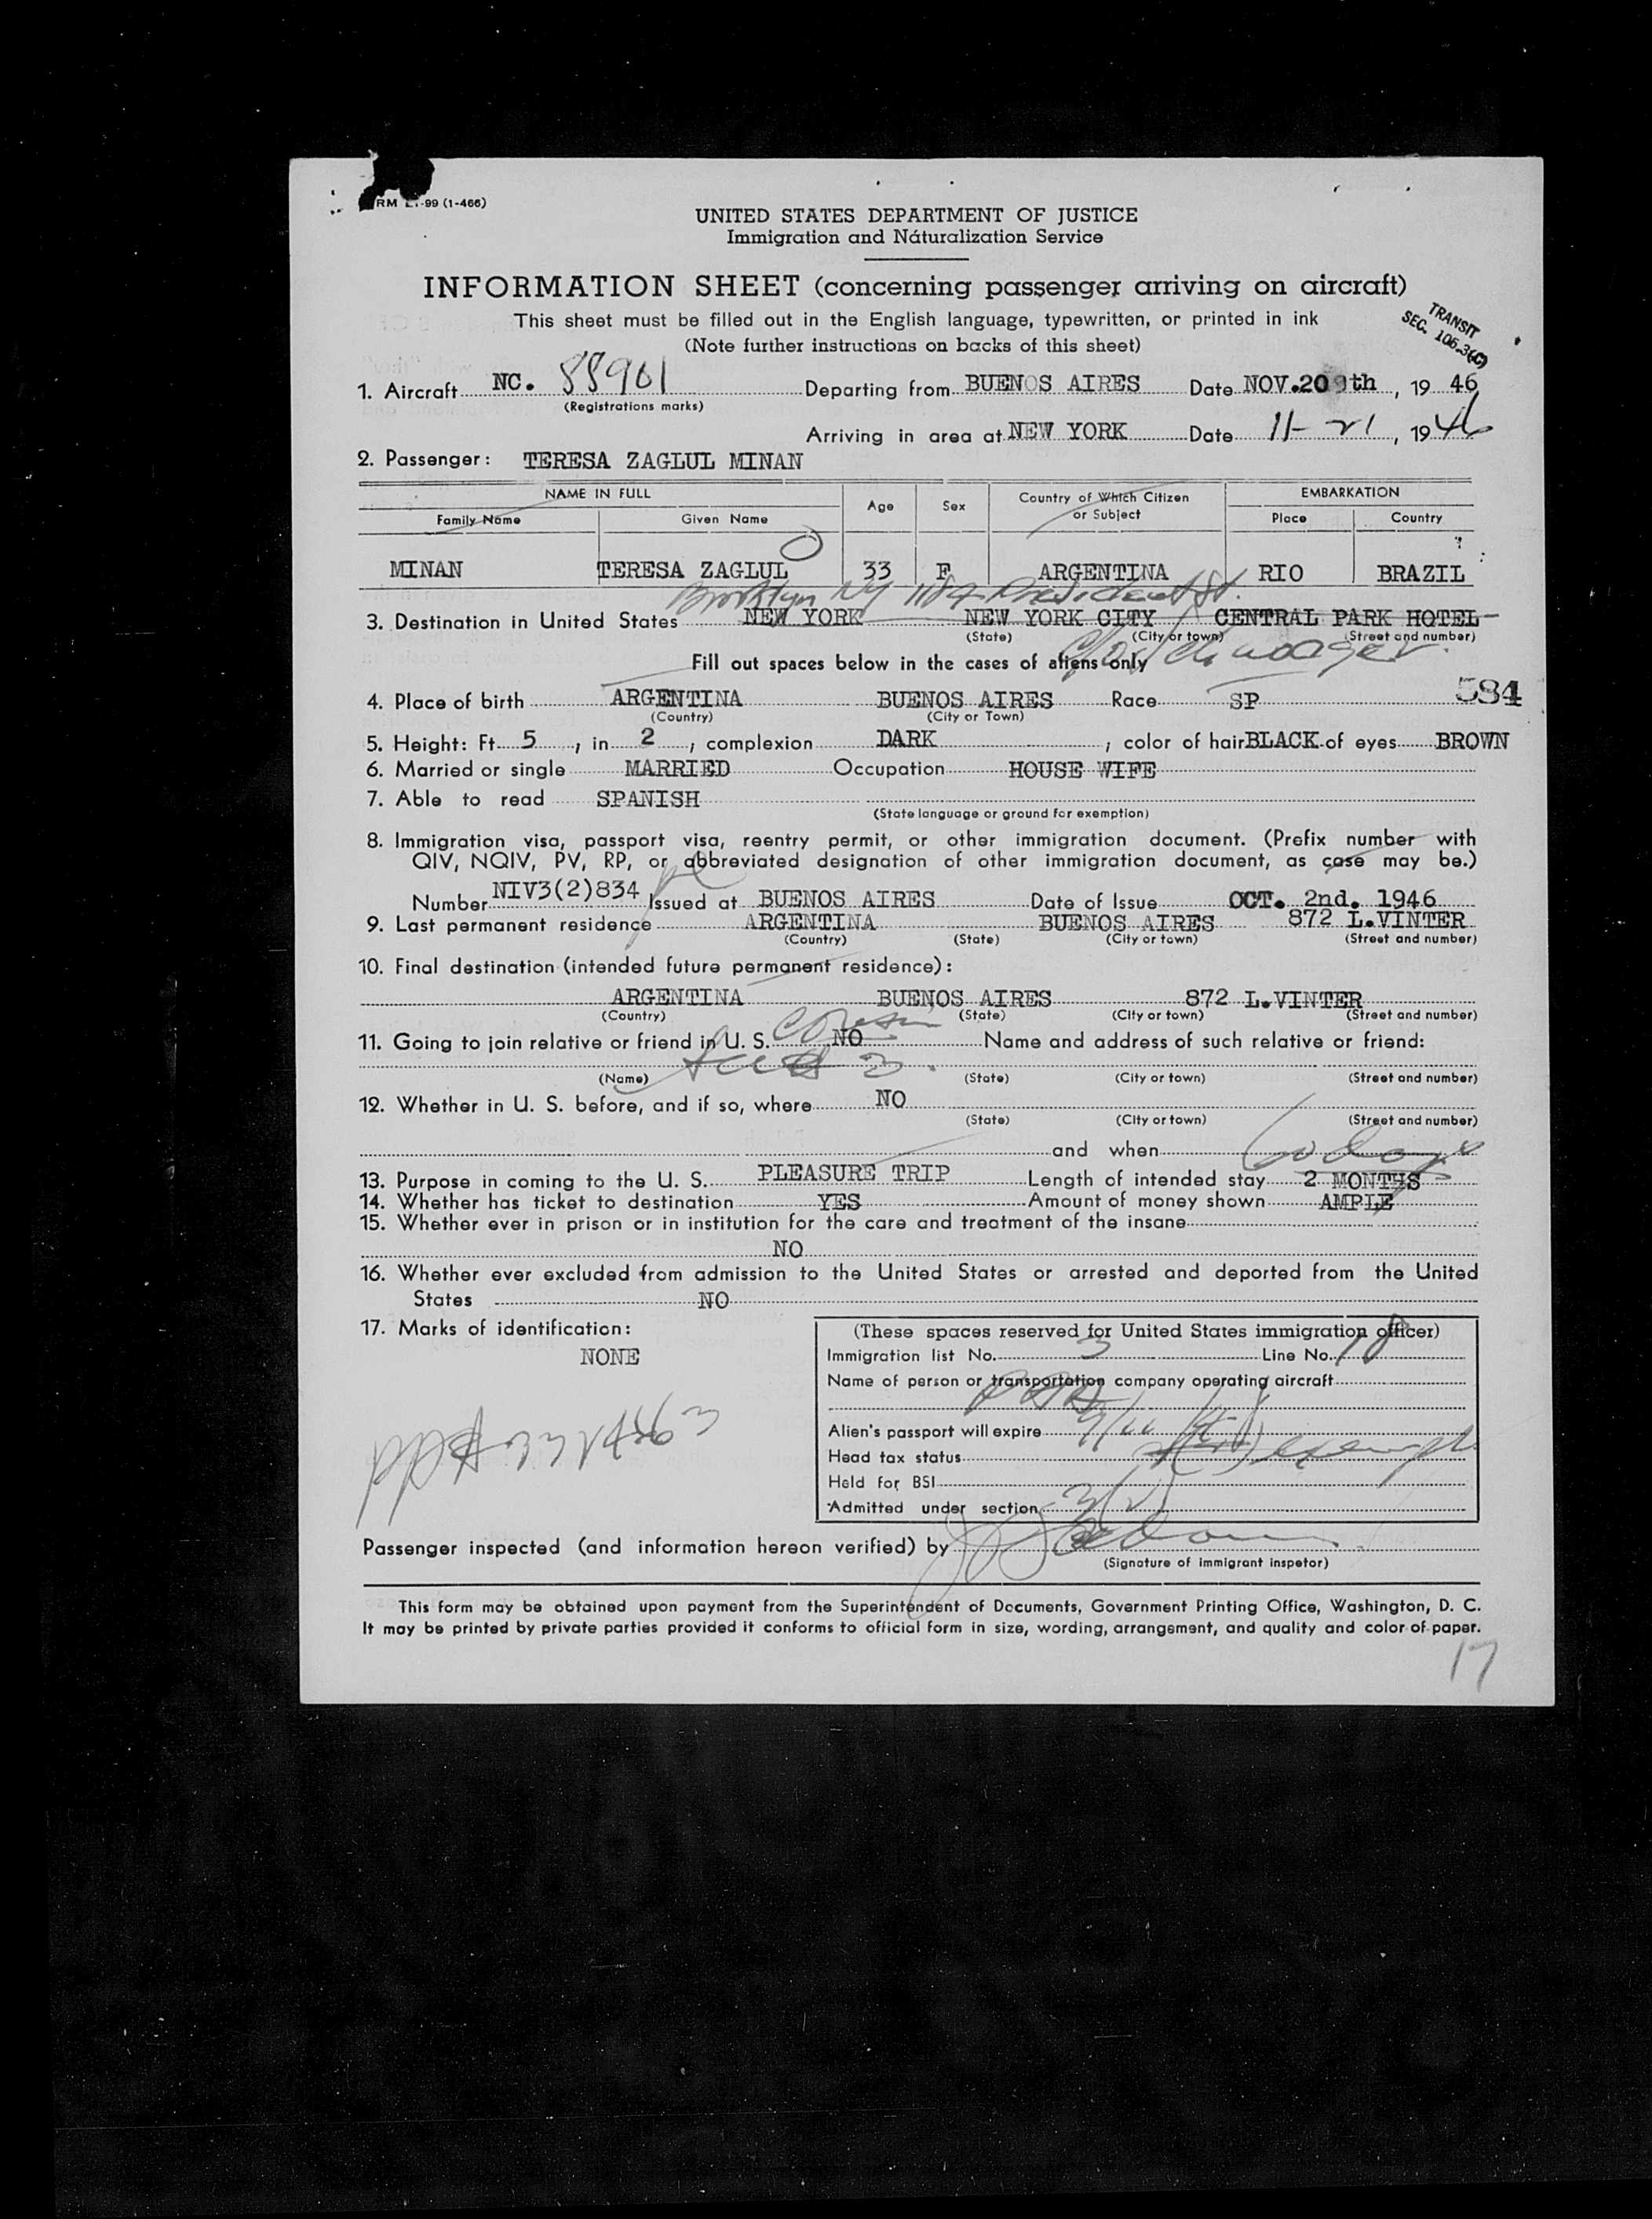 RM -99 (1-466)
UNITED STATES DEPARTMENT OF JUSTICE
Immigration and Náturalization Service
INFORMATION SHEET (concerning passenger arriving on aircraft)
This sheet must be filled out in the English language, typewritten, or printed in ink
(Note further instructions on backs of this sheet)
TRANSIT
SEC. 106.3(C)
1. Aircraft NC. 88901 Departing from BUENOS AIRES Date NOV.20th, 19 46
(Registrations marks)
Arriving in area at NEW YORK Date 11-21, 19 46
2. Passenger: TERESA ZAGLUL MINAN
NAME IN FULL Age Sex Country of Which Citizen or Subject EMBARKATION
Family Name Given Name Place Country
MINAN TERESA ZAGLUL 33 F ARGENTINA RIO BRAZIL
Brooklyn NY 1184 President St.
3. Destination in United States NEW YORK NEW YORK CITY CENTRAL PARK HOTEL
(State) (City or town) (Street and number)
Fill out spaces below in the cases of aliens only
584
4. Place of birth ARGENTINA BUENOS AIRES Race SP
(Country) (City or Town)
5. Height: Ft. 5, in 2, complexion DARK; color of hair BLACK of eyes BROWN
6. Married or single MARRIED Occupation HOUSE WIFE
7. Able to read SPANISH
(State language or ground for exemption)
8. Immigration visa, passport visa, reentry permit, or other immigration document. (Prefix number with
QIV, NQIV, PV, RP, or abbreviated designation of other immigration document, as case may be.)
Number NIV3(2)834 Issued at BUENOS AIRES Date of Issue OCT. 2nd. 1946
9. Last permanent residence ARGENTINA BUENOS AIRES 872 L.VINTER
(Country) (State) (City or town) (Street and number)
10. Final destination (intended future permanent residence):
ARGENTINA BUENOS AIRES 872 L.VINTER
(Country) (State) (City or town) (Street and number)
11. Going to join relative or friend in U. S. NO Cousin Name and address of such relative or friend:
(Name) (State) (City or town) (Street and number)
12. Whether in U. S. before, and if so, where NO
(State) (City or town) (Street and number)
and when
60 days
13. Purpose in coming to the U. S. PLEASURE TRIP Length of intended stay 2 MONTHS
14. Whether has ticket to destination YES Amount of money shown AMPLE
15. Whether ever in prison or in institution for the care and treatment of the insane
NO
16. Whether ever excluded from admission to the United States or arrested and deported from the United
States NO
17. Marks of identification:
NONE
(These spaces reserved for United States immigration officer)
Immigration list No. 3 Line No. 18
Name of person or transportation company operating aircraft
Alien's passport will expire
Head tax status exempt
Held for BSI
Admitted under section 3(2)
Passenger inspected (and information hereon verified) by
(Signature of immigrant inspetor)
This form may be obtained upon payment from the Superintendent of Documents, Government Printing Office, Washington, D. C.
It may be printed by private parties provided it conforms to official form in size, wording, arrangement, and quality and color of paper.
17